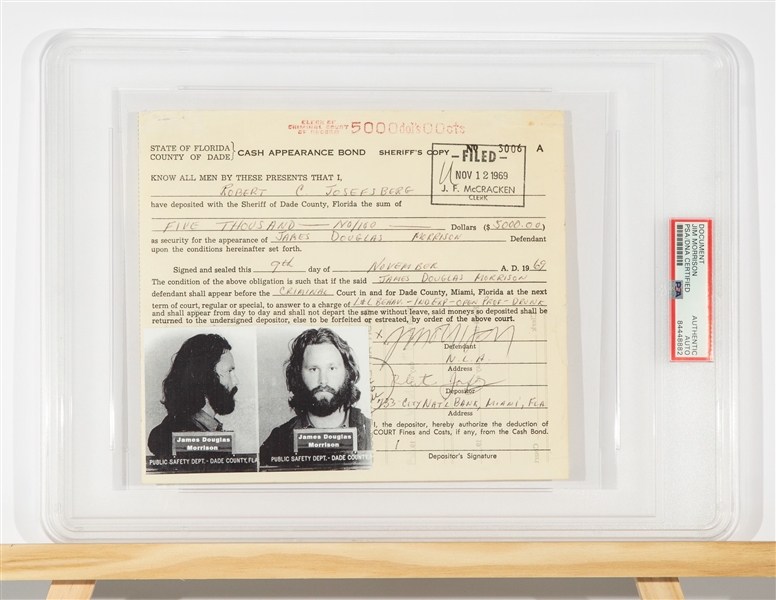 CLERK OF
CRIMINAL COURT
OF RECORD
5000dols00cts
STATE OF FLORIDA
COUNTY OF DADE
CASH APPEARANCE BOND
SHERIFF'S COPY
No 3006 A
-FILED-
NOV 12 1969
J. F. McCRACKEN
CLERK
KNOW ALL MEN BY THESE PRESENTS THAT I,
ROBERT C JOSEFSBERG
have deposited with the Sheriff of Dade County, Florida the sum of
FIVE THOUSAND — NO/100 — Dollars ($ 5000.00)
as security for the appearance of JAMES DOUGLAS MORRISON Defendant
upon the conditions hereinafter set forth.
Signed and sealed this 9th day of NOVEMBER A. D. 19 69
The condition of the above obligation is such that if the said JAMES DOUGLAS MORRISON
defendant shall appear before the CRIMINAL Court in and for Dade County, Miami, Florida at the next
term of court, regular or special, to answer to a charge of L&L BEHAV - IND EXP - OPEN PROF - DRUNK
and shall appear from day to day and shall not depart the same without leave, said moneys so deposited shall be
returned to the undersigned depositor, else to be forfeited or estreated, by order of the above court.
x
Defendant
N.L.A.
Address
Depositor
CITY NAT'L BANK, MIAMI, FLA
Address
I, the depositor, hereby authorize the deduction of
COURT Fines and Costs, if any, from the Cash Bond.
Depositor's Signature
James Douglas
Morrison
PUBLIC SAFETY DEPT. - DADE COUNTY, FLA
James Douglas
Morrison
PUBLIC SAFETY DEPT. - DADE COUNTY
DOCUMENT
JIM MORRISON
PSA/DNA CERTIFIED
PSA
AUTHENTIC
AUTO
84448882